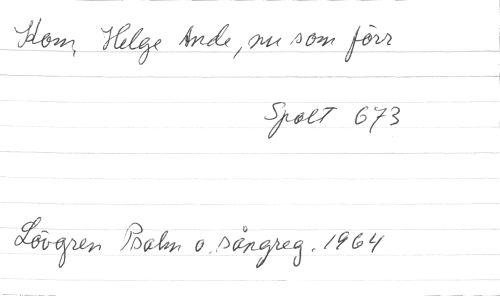 Kom, Helge Ande, nu som förr
Spalt 673
Lövgren Psalm o. sångreg. 1964